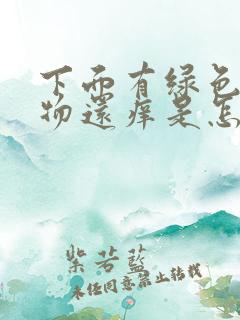 下面有绿色
物还痒是怎
紫若蓝
未经同意禁止转载